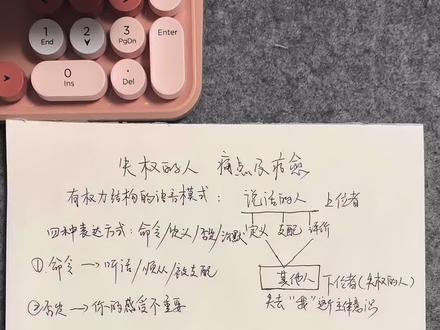 1
End
2
3
PgDn
Enter
0
Ins
.
Del
失权的人 痛点及疗愈
有权力结构的语言模式: 说话的人 上位者
四种表达方式: 命令/定义/否定/沉默 定义 支配 评价
① 命令 → 听话/顺从/被支配
其他人 下位者(失权的人)
② 否定 → 你的感受不重要
失去"我"的主体意识